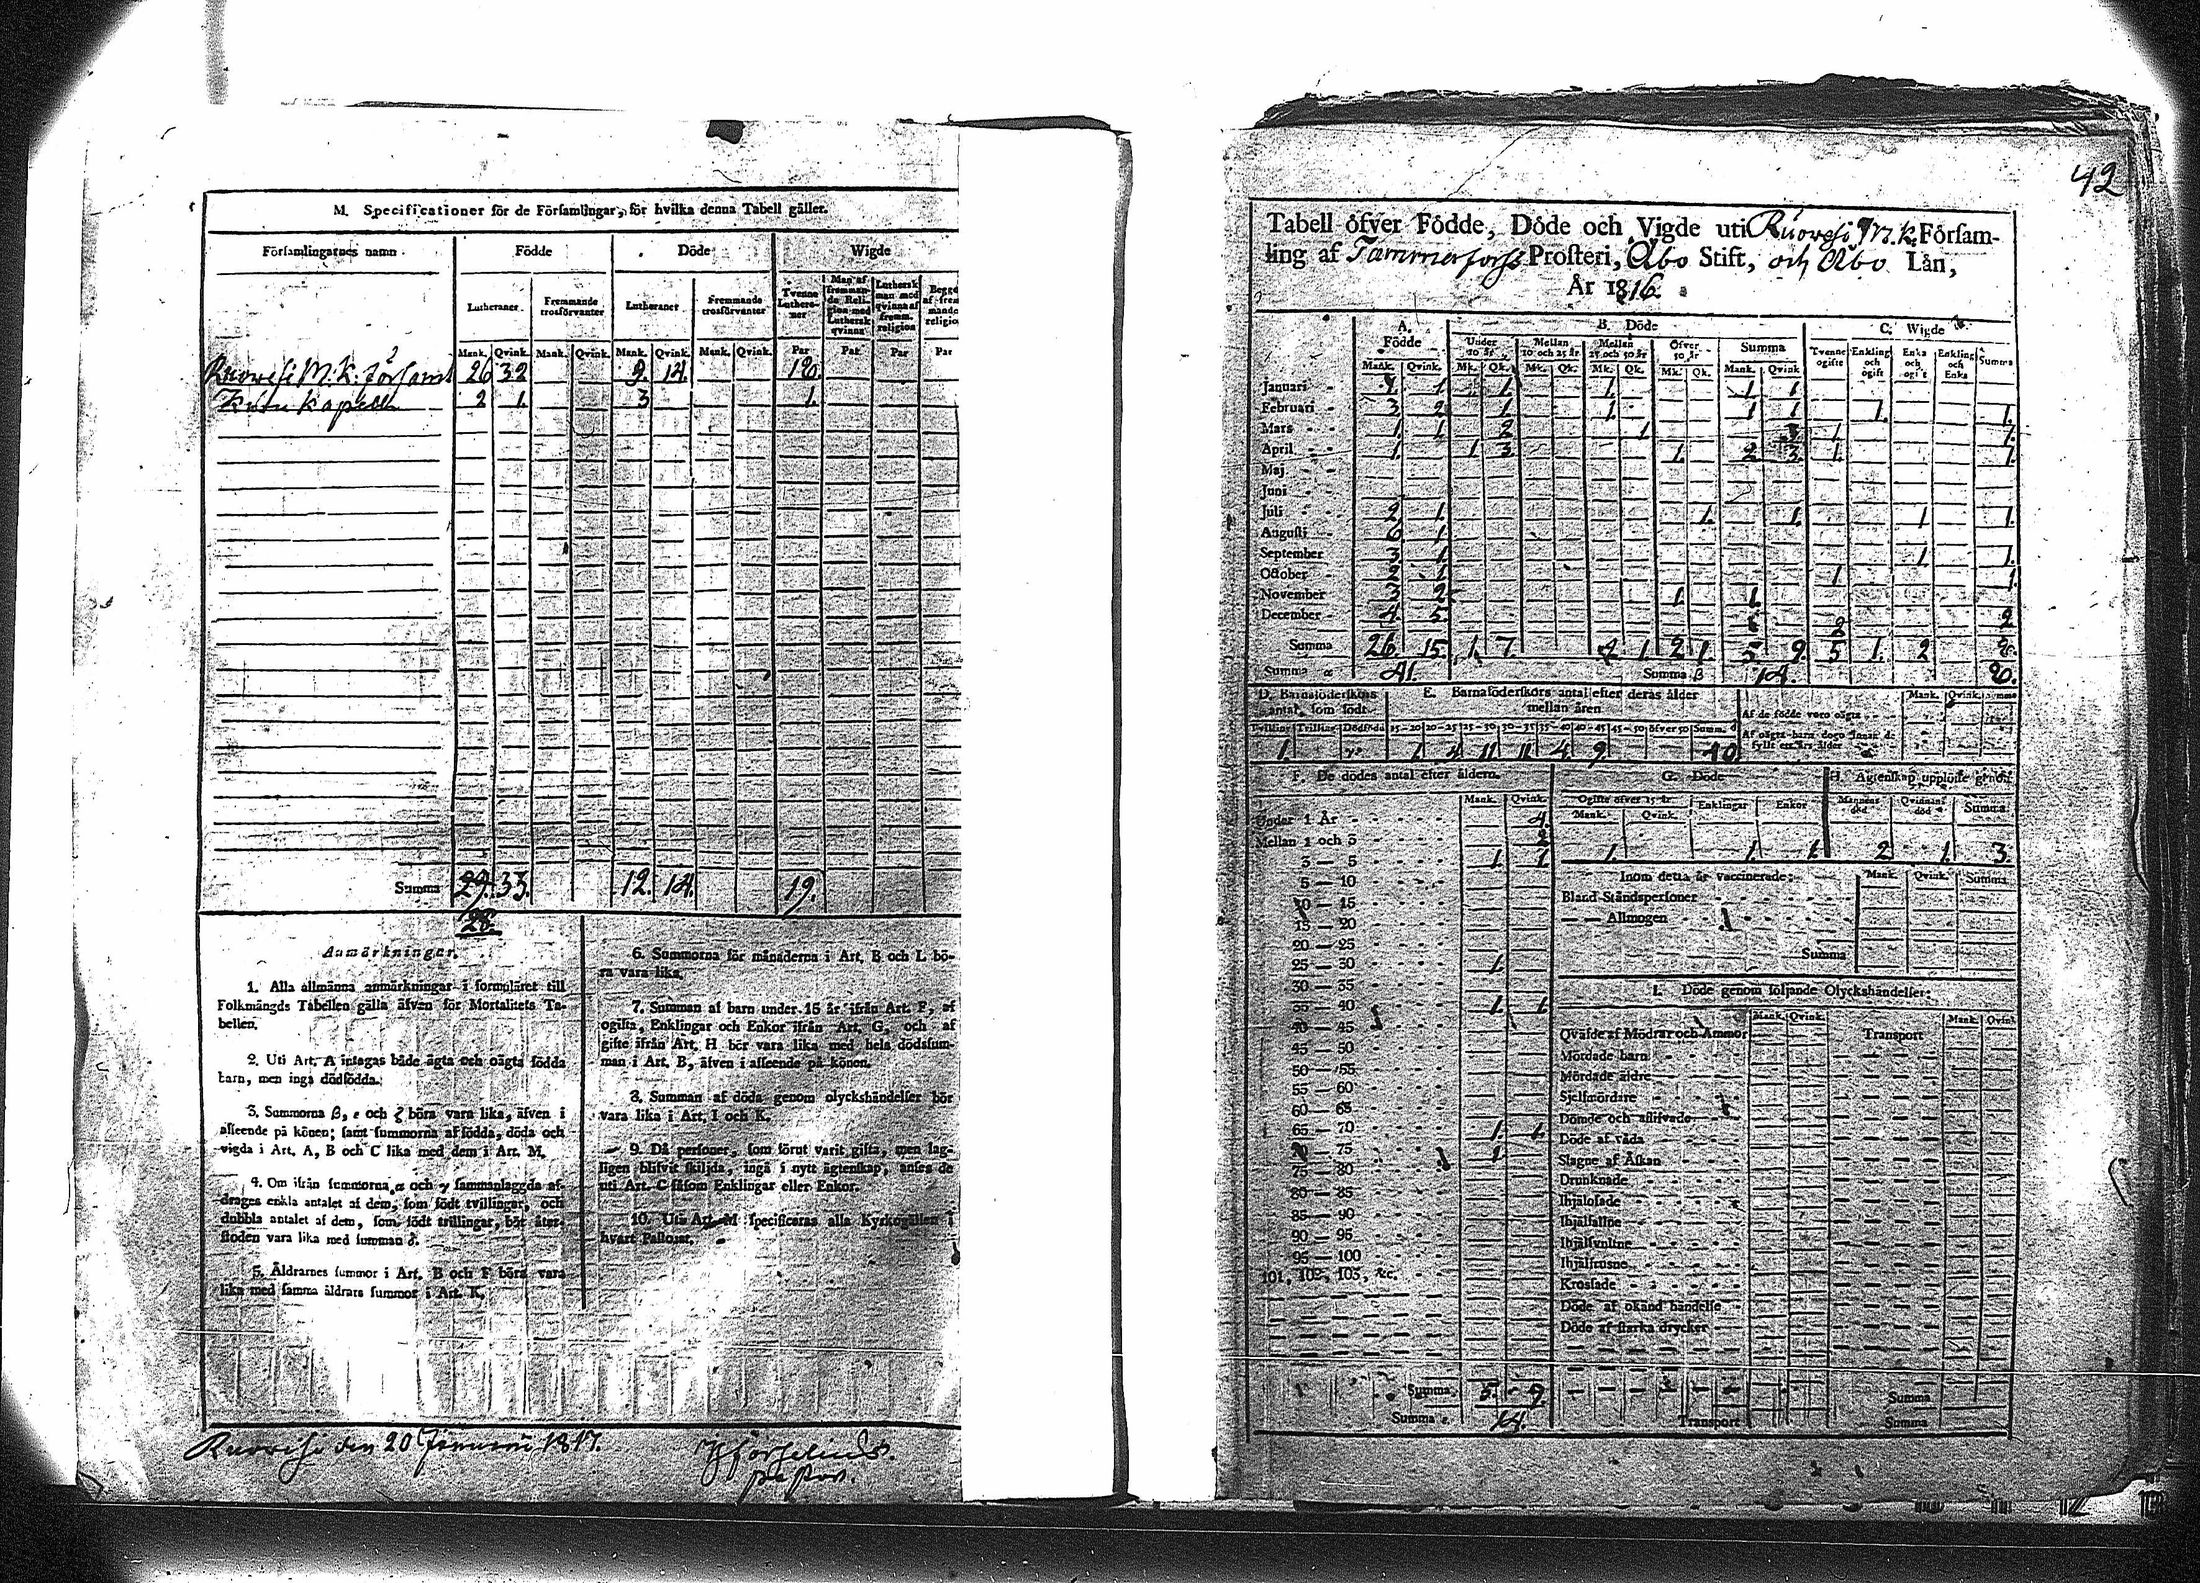 M. Specificationer för de Församlingar, för hvilka denna Tabell gäller.
Församlingarnes namn. Födde Döde Wigde
Lutheraner. Fremmande trosförvanter Lutheraner Fremmande trosförvanter Tvenne Lutheraner Man af fremmande Religion med Luthersk qvinna Luthersk man med qvinna af fremm. religion
Mank. Qvink. Mank. Qvink. Mank. Qvink. Mank. Qvink. Par Par Par Par
M. K. Församl 26 32 9. 14. 18
Kapell 2 1. 3 1.
Summa 29. 33. 12. 14. 19.
28.
Anmärkningar.
1. Alla allmänna anmärkningar i formuläret till
Folkmängds Tabellen gälla äfven för Mortalitets Ta-
bellen.
2. Uti Art. A intagas både ägta och oägta födda
barn, men inga dödfödda.
3. Summorna β, ε och ζ böra vara lika, äfven i
afseende på könen; samt summorna af födda, döda och
vigda i Art. A, B och C lika med dem i Art. M.
4. Om ifrån summorna α och γ sammanlaggda af-
drages enkla antalet af dem, som födt tvillingar, och
dubbla antalet af dem, som födt trillingar, bör åter-
stoden vara lika med summan δ.
5. Åldrarnes summor i Art. B och F böra vara
lika med samma åldrars summor i Art. K.
6. Summorna för månaderna i Art. B och L bö-
ra vara lika.
7. Summan af barn under 15 år ifrån Art. F, af
ogifta, Enklingar och Enkor ifrån Art. G, och af
gifte ifrån Art. H bör vara lika med hela dödsum-
man i Art. B, äfven i afseende på könen.
8. Summan af döda genom olyckshändelser bör
vara lika i Art. I och K.
9. Då personer, som förut varit gifta, men lag-
ligen blifvit skiljda, ingå i nytt ägtenskap, anses de
uti Art. C såsom Enklingar eller Enkor.
10. Uti Art. M specificeras alla Kyrkogällen i
hvart Pastorat.
Ruovesi den 20 Januarii 1817.
42
Tabell öfver Födde, Döde och Vigde uti Ruovesi M. K. Försam-
ling af Tammerfors Prosteri, Åbo Stift, och Åbo Län,
År 1816.
A. Födde B. Döde C. Wigde
Under 10 år Mellan 10 och 25 år Mellan 25 och 50 år Öfver 50 år Summa Tvenne ogifte Enkling och ogift Enka och ogift Enkling och Enka Summa
Mank. Qvink. Mk. Qk. Mk. Qk. Mk. Qk. Mk. Qk. Mank. Qvink
Januari 1 1. 1. 1 1
Februari 3 2 1 1. 1 1 1. 1.
Mars 1 1. 2 1 3 1. 1.
April 1. 1 3 1. 2 3 1. 1.
Maj
Juni
Juli 2 1. 1. 1. 1 1.
Augusti 6 1
September 3 1 1 1.
October 2 1 1 1.
November 3 2 1 1.
December 4. 5. 2 2
Summa 26 15. 1. 7. 2 1 2 1. 5 9. 5 1. 2 8.
Summa α 41. Summa β 14.
D. Barnaföderskors antal, som födt E. Barnaföderskors antal efter deras ålder mellan åren
Tvilling Trilling Dödföda 15-20 20-25 25-30 30-35 35-40 40-45 45-50 öfver 50 Summ. δ
1. 1. 4 11 11 4 9. 40
Af de födde voro oägta
Af oägta barn dogo innan de
fyllt ett års ålder
F. De dödes antal efter åldern. G. Döde H. Ägtenskap upplöste genom
Mank. Qvink. Ogifte öfver 15 år Enklingar Enkor Mannens död Qvinnans död Summa
Under 1 År 4.
Mellan 1 och 3 2
3 — 5 1. 1 1. 1. 1. 2 1. 3.
5 — 10
10 — 15
15 — 20
20 — 25
25 — 30 1.
30 — 35
35 — 40 1. 1.
40 — 45
45 — 50
50 — 55
55 — 60
60 — 65
65 — 70 1. 1.
70 — 75 1
75 — 80
80 — 85
85 — 90
90 — 95
95 — 100
101, 102, 103, &c.
Summa 5. 9.
Summa ε. 14.
Inom detta år vaccinerade: Mank. Qvink. Summa
Bland Ståndspersoner
— — Allmogen
Summa
I. Döde genom följande Olyckshändelser:
Mank. Qvink. Transport Mank. Qvink
Qväfde af Mödrar och Ammor
Mördade barn
Mördade äldre
Sjelfmördare
Dömde och aflifvade
Döde af våda
Slagne af Åskan
Drunknade
Ihjälosade
Ihjälfallne
Ihjälsvultne
Ihjälfrusne
Krossade
Döde af okänd händelse
Döde af starka drycker
Summa
Transport Summa